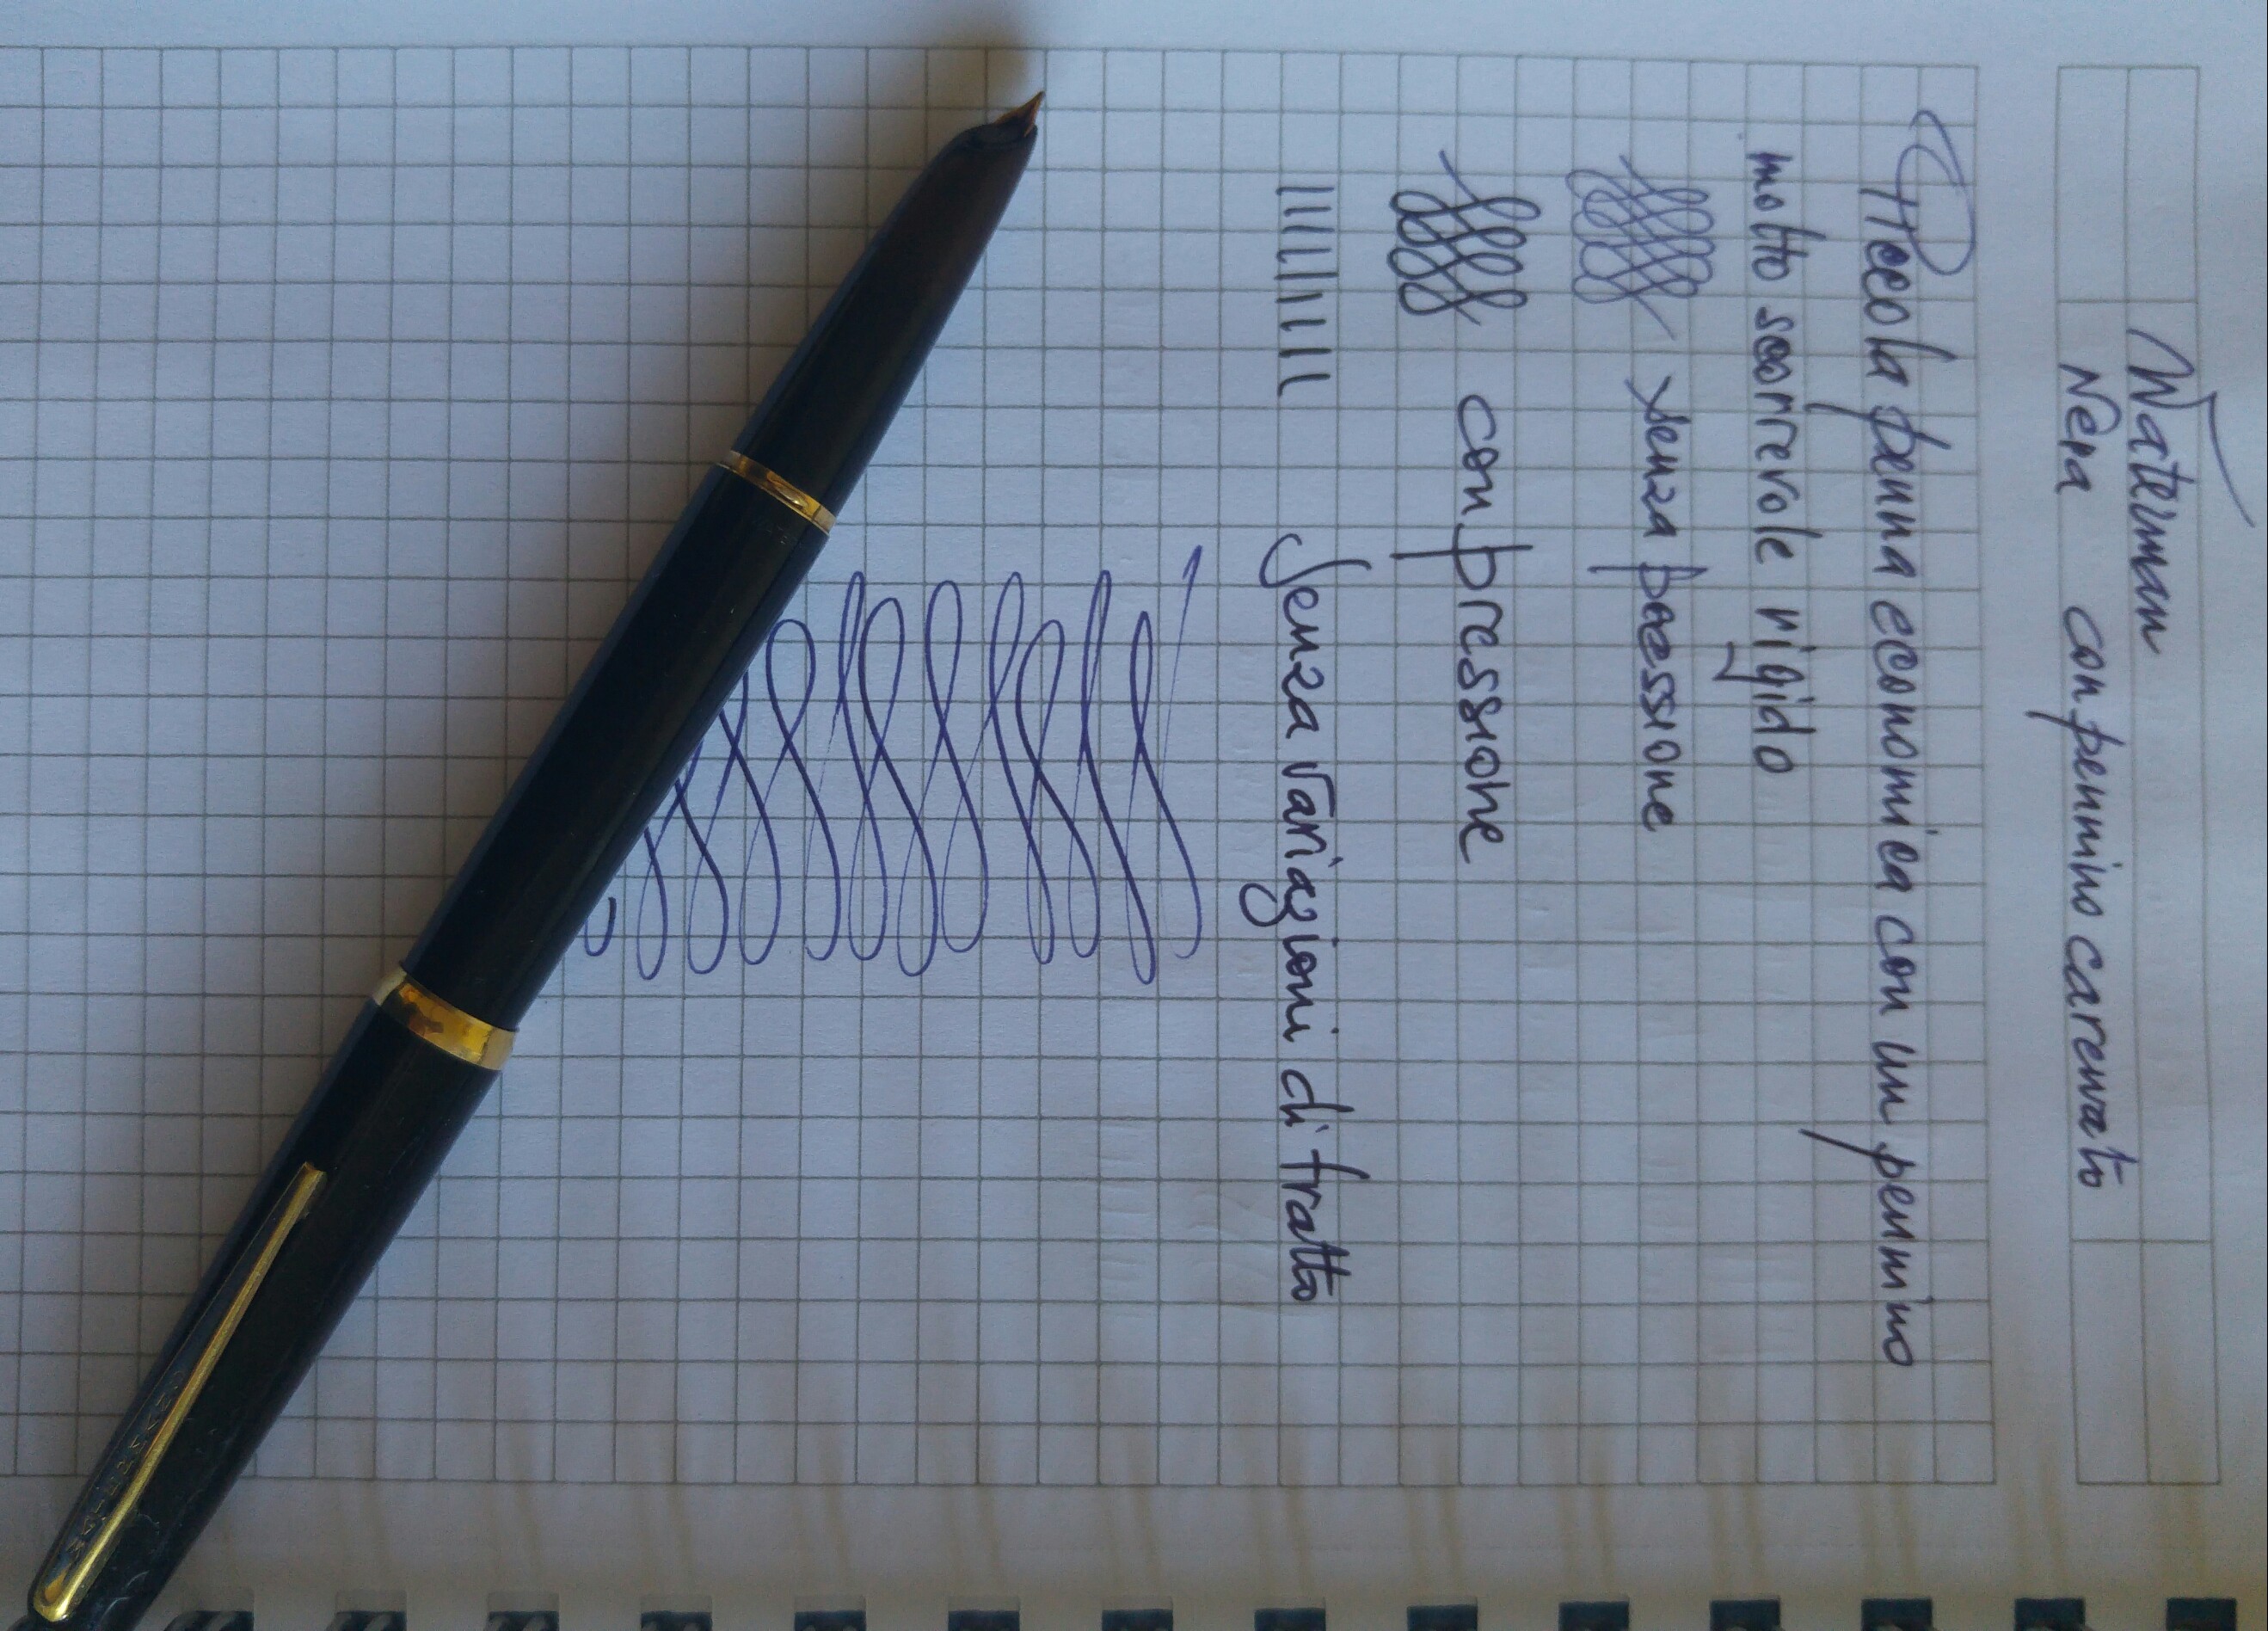 Waterman
Nera con pennino carenato
Piccola penna economica con un pennino
molto scorrevole rigido
senza pressione
con pressione
Senza variazioni di tratto